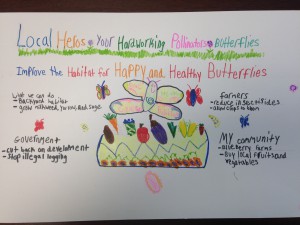 Local Heros - Your Hardworking Pollinators - Butterflies
Improve the Habitat for Happy and Healthy Butterflies
What we can do
- Backyard habitat
- grow milkweed, yarrow, and sage
farmers
- reduce insecticides
Government
- cut back on development
- stop illegal logging
My community
- blueberry farms
- Buy local fruits and
vegetables